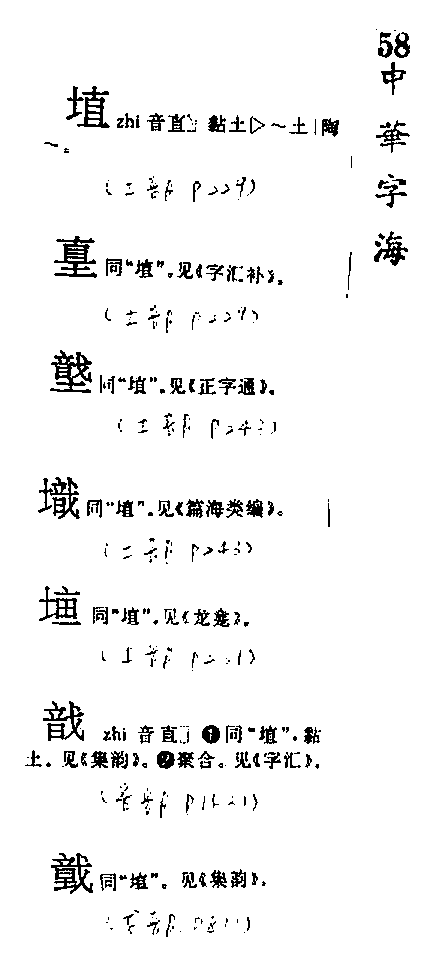 58
中華字海
埴 zhi 音直 黏土▷～土|陶
～。
(土部 P229)
同“埴”。见《字汇补》。
(土部 P229)
同“埴”。见《正字通》。
(土部 P243)
同“埴”。见《篇海类编》。
(土部 P243)
同“埴”。见《龙龛》。
(土部
戠 zhi 音直 ❶同“埴”。黏
土。见《集韵》。❷聚合。见《字汇》。
(音部
同“埴”。见《集韵》。